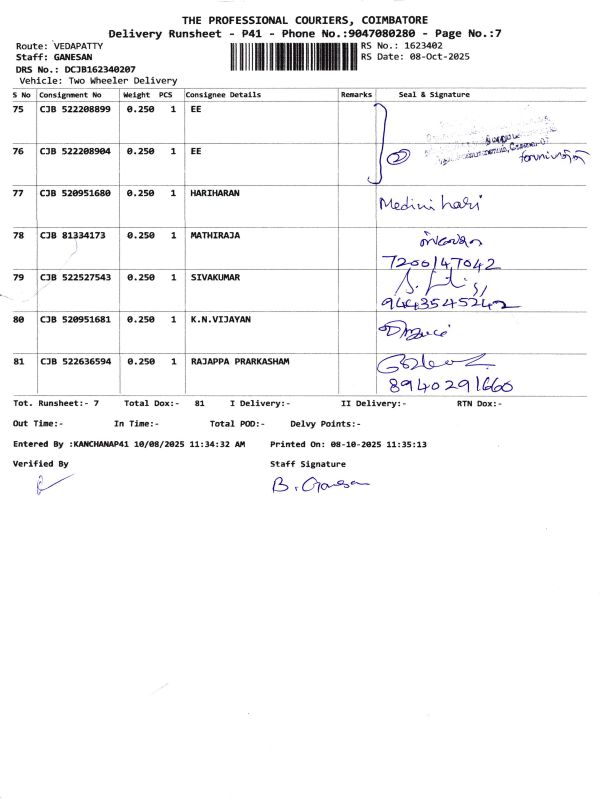 THE PROFESSIONAL COURIERS, COIMBATORE
Delivery Runsheet - P41 - Phone No.:9047080280 - Page No.:7
Route: VEDAPATTY RS No.: 1623402
Staff: GANESAN RS Date: 08-Oct-2025
DRS No.: DCJB162340207
Vehicle: Two Wheeler Delivery
S No Consignment No Weight PCS Consignee Details Remarks Seal & Signature
75 CJB 522208899 0.250 1 EE
76 CJB 522208904 0.250 1 EE 2
77 CJB 520951680 0.250 1 HARIHARAN Medini hari
78 CJB 81334173 0.250 1 MATHIRAJA
7200147042
79 CJB 522527543 0.250 1 SIVAKUMAR
9443545242
80 CJB 520951681 0.250 1 K.N.VIJAYAN
81 CJB 522636594 0.250 1 RAJAPPA PRARKASHAM
8940291660
Tot. Runsheet:- 7 Total Dox:- 81 I Delivery:- II Delivery:- RTN Dox:-
Out Time:- In Time:- Total POD:- Delvy Points:-
Entered By :KANCHANAP41 10/08/2025 11:34:32 AM Printed On: 08-10-2025 11:35:13
Verified By Staff Signature
B. Ganesan